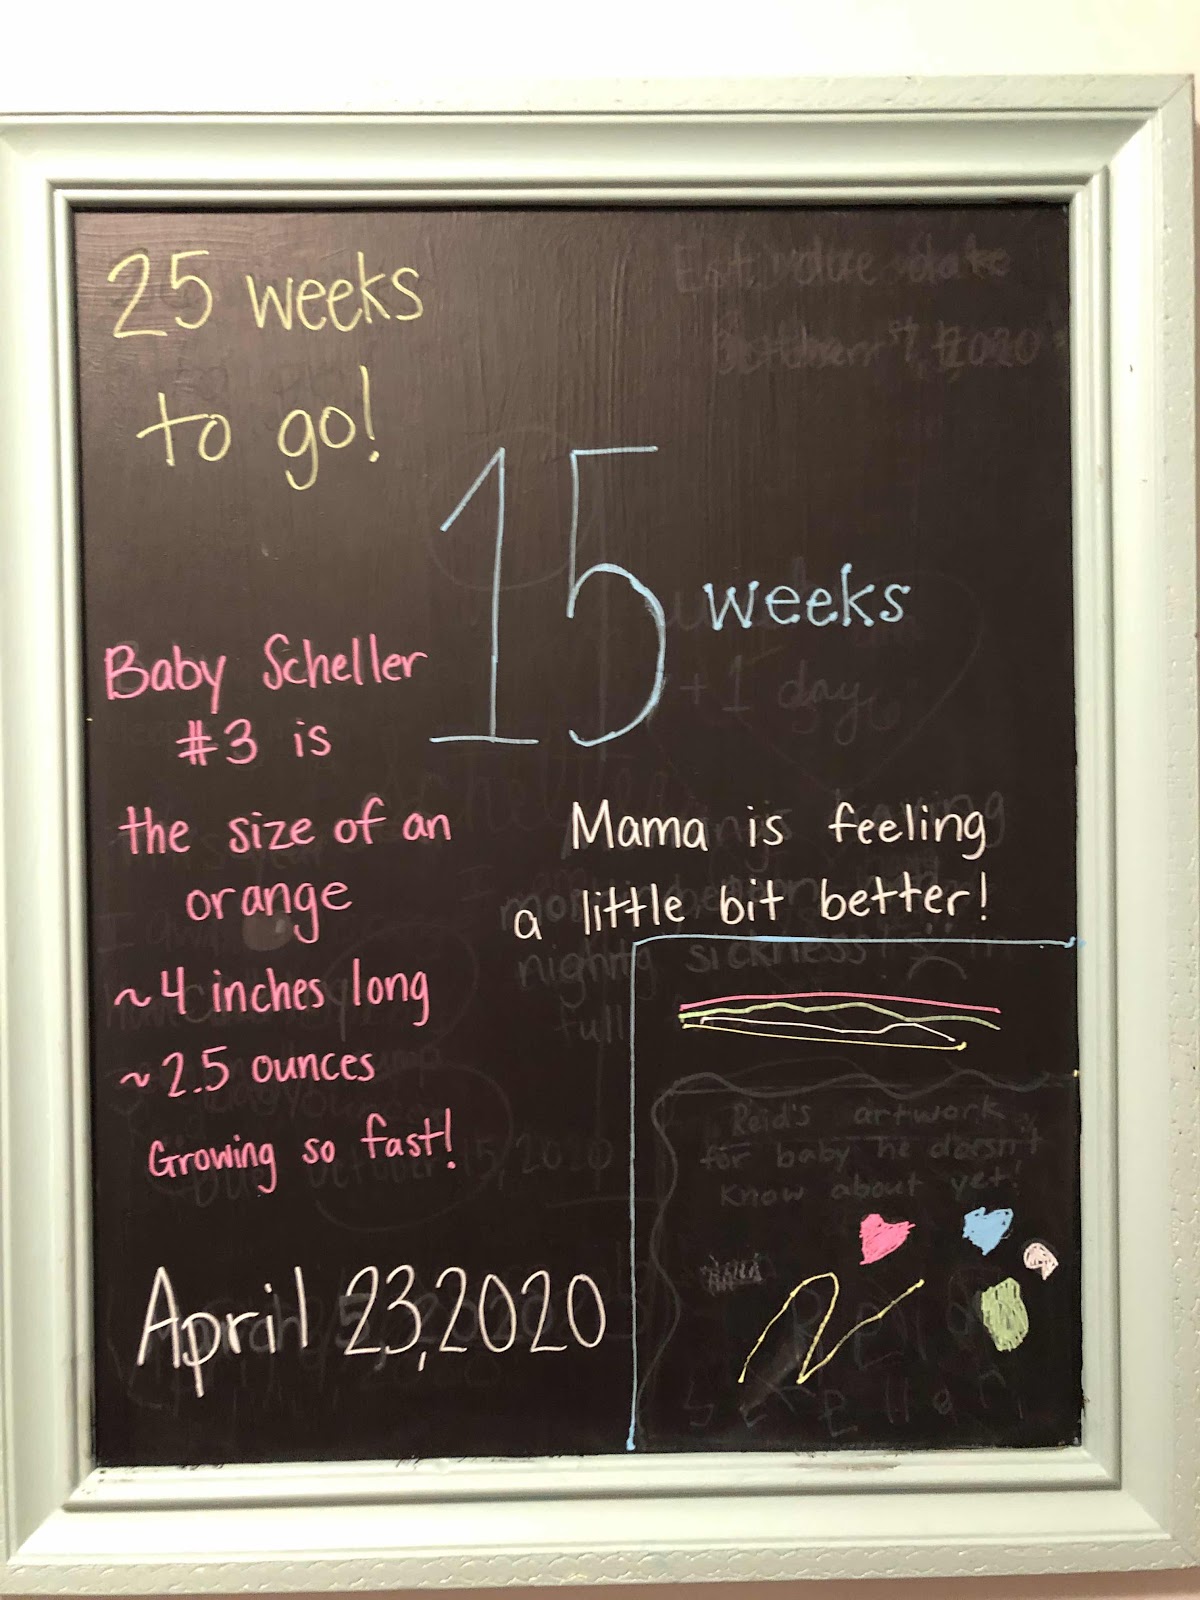 25 weeks
to go!
Est. due date
15 weeks
+ 1 day
Baby Scheller
#3 is
the size of an
orange
~4 inches long
~2.5 ounces
Growing so fast!
Mama is feeling
a little bit better!
Reid's artwork
for baby he doesn't
know about yet!
April 23, 2020